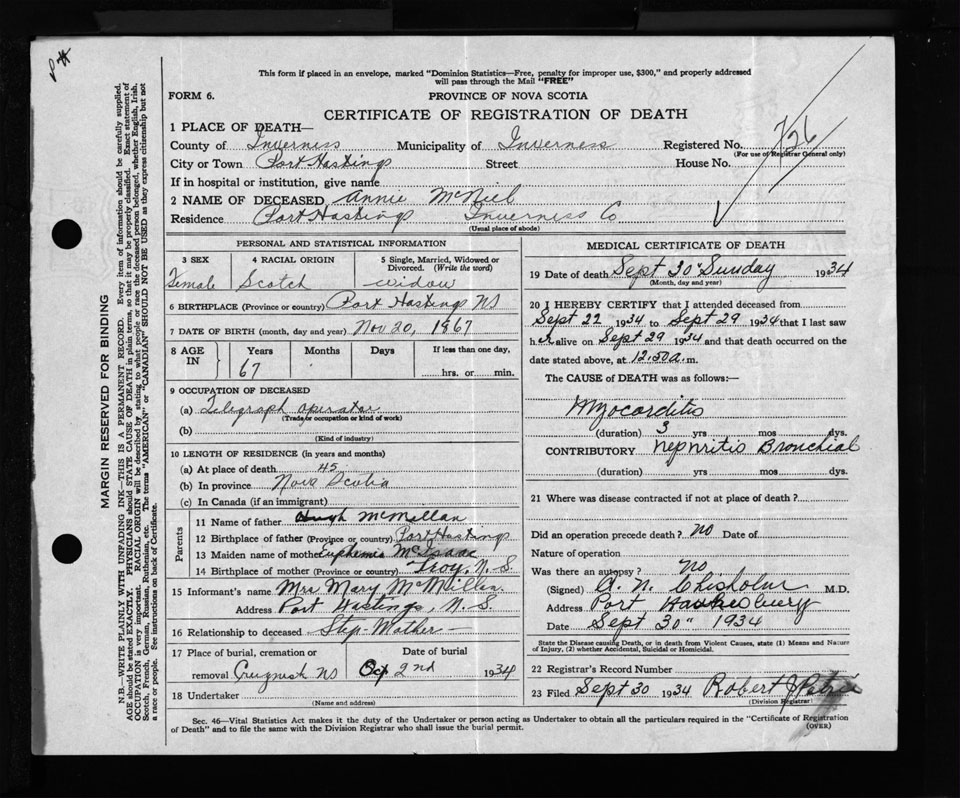 This form if placed in an envelope, marked "Dominion Statistics—Free, penalty for improper use, $300," and properly addressed
will pass through the Mail "FREE"
FORM 6.
PROVINCE OF NOVA SCOTIA
CERTIFICATE OF REGISTRATION OF DEATH
1 PLACE OF DEATH—
County of Inverness Municipality of Inverness Registered No. 726
(For use of Registrar General only)
City or Town Port Hastings Street House No.
If in hospital or institution, give name
2 NAME OF DECEASED Annie McNiel
Residence Port Hastings Inverness Co
(Usual place of abode)
PERSONAL AND STATISTICAL INFORMATION
3 SEX 4 RACIAL ORIGIN 5 Single, Married, Widowed or Divorced. (Write the word)
Female Scotch widow
6 BIRTHPLACE (Province or country) Port Hastings NS
7 DATE OF BIRTH (month, day and year) Nov 20, 1867
8 AGE IN Years Months Days If less than one day,
67 hrs. or min.
9 OCCUPATION OF DECEASED
(a) Telegraph operator
(Trade or occupation or kind of work)
(b)
(Kind of industry)
10 LENGTH OF RESIDENCE (in years and months)
(a) At place of death 45
(b) In province Nova Scotia
(c) In Canada (if an immigrant)
Parents
11 Name of father Hugh McMillan
12 Birthplace of father (Province or country) Port Hastings
13 Maiden name of mother Euphemia McIsaac
14 Birthplace of mother (Province or country) Troy, N. S.
15 Informant's name Mrs Mary McMillan
Address Port Hastings, N. S.
16 Relationship to deceased Step-Mother
17 Place of burial, cremation or Date of burial
removal Creignish NS Oct 2nd 1934
18 Undertaker
(Name and address)
MEDICAL CERTIFICATE OF DEATH
19 Date of death Sept 30" Sunday 1934
(Month, day and year)
20 I HEREBY CERTIFY that I attended deceased from
Sept 22 1934 to Sept 29 1934 that I last saw
her alive on Sept 29 1934 and that death occurred on the
date stated above, at 12.50 a. m.
The CAUSE of DEATH was as follows:—
Myocarditis
(duration) 3 yrs mos dys.
CONTRIBUTORY Nephritis Bronchial
(duration) yrs mos dys.
21 Where was disease contracted if not at place of death ?
Did an operation precede death ? no Date of
Nature of operation
Was there an autopsy ? no
(Signed) N. Chisholm M.D.
Address Port Hawkesbury
Date Sept 30" 1934
State the Disease causing Death, or in death from Violent Causes, state (1) Means and Nature
of Injury, (2) whether Accidental, Suicidal or Homicidal.
22 Registrar's Record Number
23 Filed Sept 30 1934 Robert J Petrie
(Division Registrar)
Sec. 46—Vital Statistics Act makes it the duty of the Undertaker or person acting as Undertaker to obtain all the particulars required in the "Certificate of Registration
of Death" and to file the same with the Division Registrar who shall issue the burial permit.
(OVER)
MARGIN RESERVED FOR BINDING
N.B.—WRITE PLAINLY WITH UNFADING INK—THIS IS A PERMANENT RECORD. Every item of information should be carefully supplied.
AGE should be stated EXACTLY. PHYSICIANS should STATE CAUSE OF DEATH in plain terms, so that it may be properly classified. Exact statement of
OCCUPATION is very important. RACIAL ORIGIN will be described by stating to what people or race the deceased person belonged, whether English, Irish,
Scotch, French, German, Russian, Ruthenian, etc. The terms "AMERICAN" or "CANADIAN" SHOULD NOT BE USED as they express citizenship but not
a race or people. See instructions on back of Certificate.